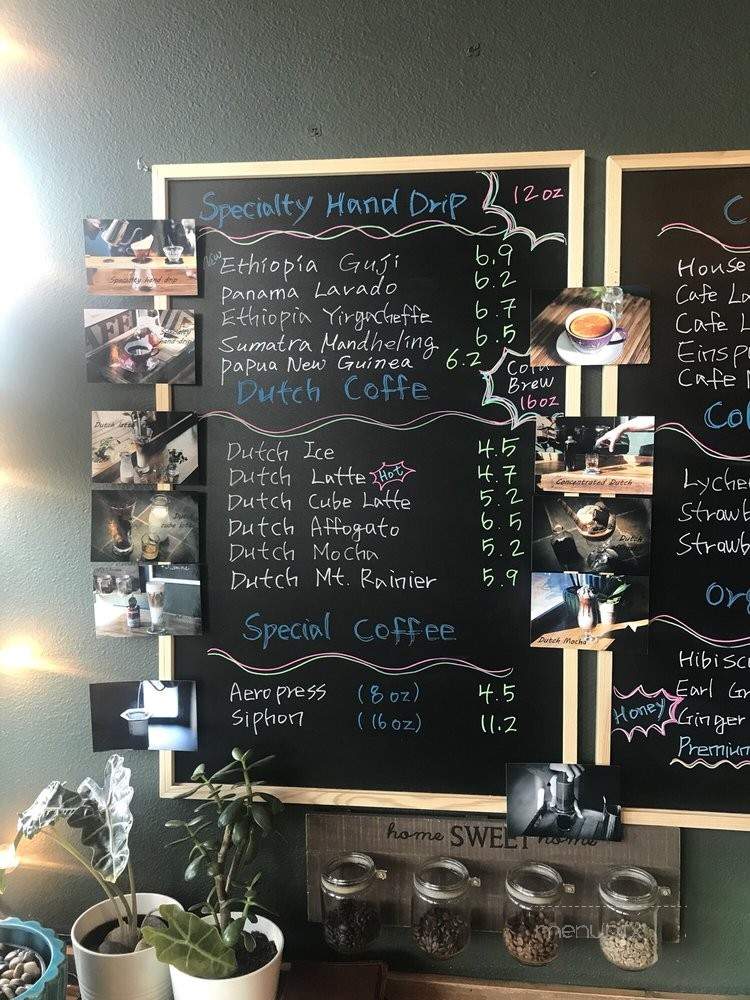 Specialty Hand Drip 12 oz
New Ethiopia Guji 6.9
Panama Lavado 6.2
Ethiopia Yirgacheffe 6.7
Sumatra Mandheling 6.5
Papua New Guinea 6.2
Dutch Coffe
Cold
Brew
16oz
Dutch Ice 4.5
Dutch Latte Hot 4.7
Dutch Cube Latte 5.2
Dutch Affogato 6.5
Dutch Mocha 5.2
Dutch Mt. Rainier 5.9
Special Coffee
Aeropress (8 oz) 4.5
Siphon (16 oz) 11.2
C
House
Cafe La
Cafe L
Einsp
Cafe M
Co
Lychee
Strawb
Strawb
Or
Hibisc
Earl Gr
Honey
Ginger
Premium
Specialty hand drip
Dutch latte
Concentrated Dutch
Dutch
Dutch Mocha
home SWEET home